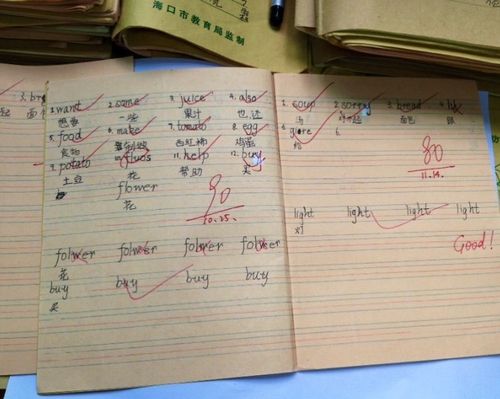 海口市教育局监制
1. want 2. some 3. juice 4. also
想要 一些 果汁 也,还
5. food 6. make 7. tomato 8. egg
食物 西红柿 鸡蛋
9. potato 11. help 12. buy
土豆 花 帮助 买
flower
花
90
10.25.
folwer folwer folwer folwer
花
buy buy buy buy
买
1. soup 2. sorry 3. bread
汤 对不起 面包
5. 6.
给
80
11.14.
light light light light
灯
Good!